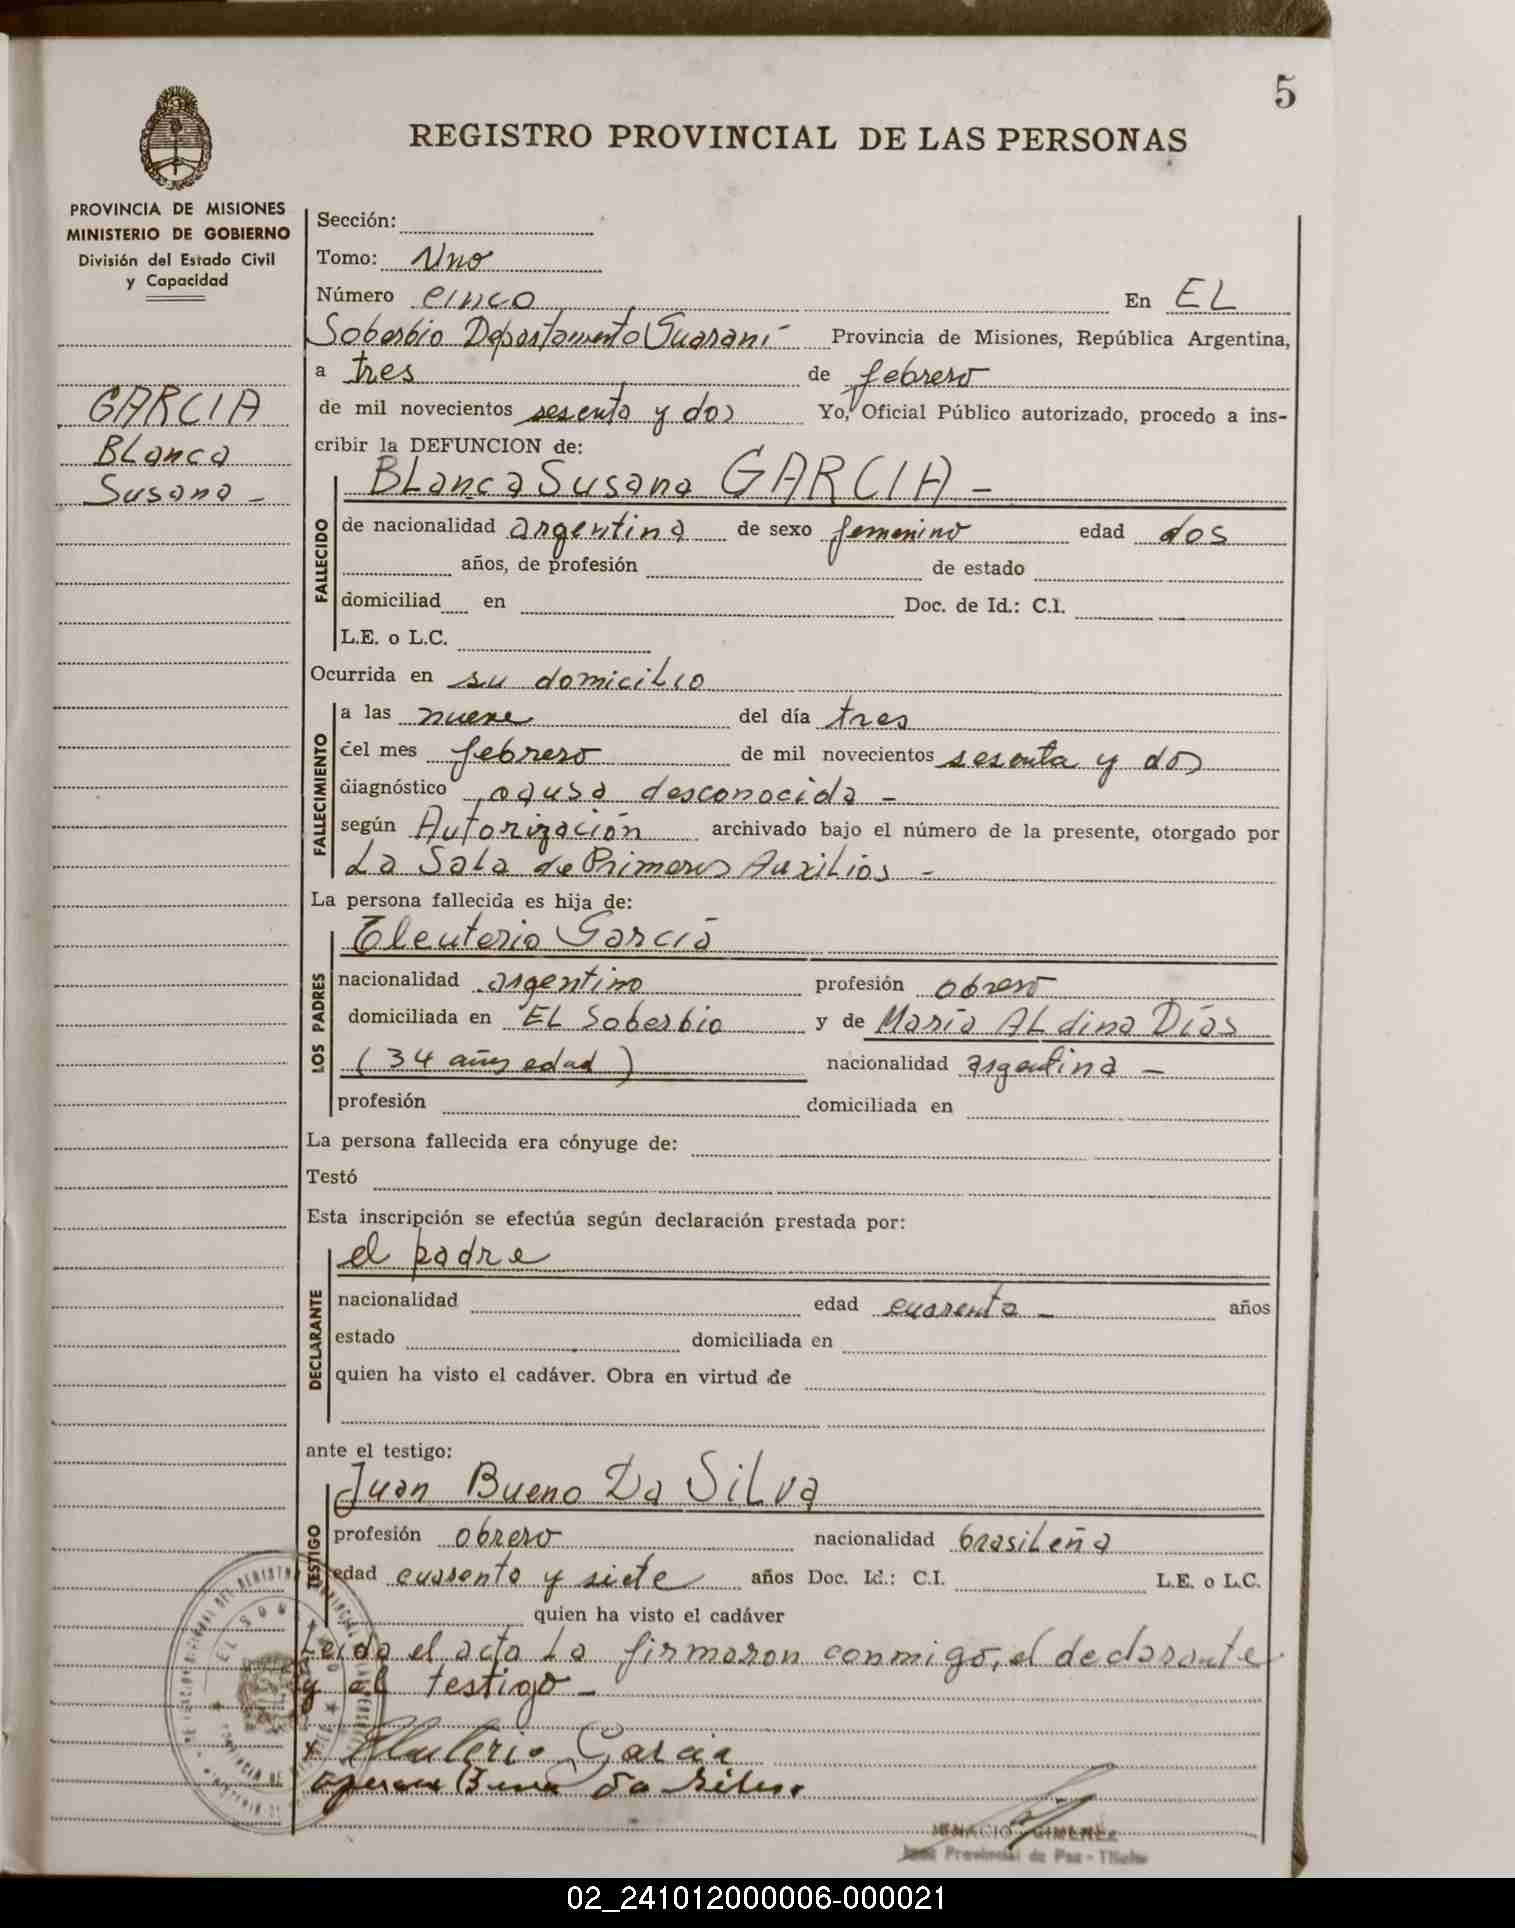 5
REGISTRO PROVINCIAL DE LAS PERSONAS
PROVINCIA DE MISIONES
MINISTERIO DE GOBIERNO
División del Estado Civil
y Capacidad
GARCIA
BLanca
Susana -
Sección:
Tomo: Uno
Número cinco En EL
Soberbio Departamento Guaraní - Provincia de Misiones, República Argentina,
a tres de febrero
de mil novecientos sesenta y dos Yo, Oficial Público autorizado, procedo a ins-
cribir la DEFUNCION de:
BLanca Susana GARCIA -
FALLECIDO
de nacionalidad argentina de sexo femenino edad dos
años, de profesión de estado
domiciliad en Doc. de Id.: C.I.
L.E. o L.C.
Ocurrida en su domiciLio
FALLECIMIENTO
a las nueve del día tres
del mes febrero de mil novecientos sesenta y dos
diagnóstico causa desconocida -
según Autorización archivado bajo el número de la presente, otorgado por
La Sala de Primeros AuxiLios -
La persona fallecida es hija de:
LOS PADRES
Eleuterio García
nacionalidad argentino profesión obrero
domiciliada en EL Soberbio y de María ALdina Días
(34 años edad) nacionalidad argentina -
profesión domiciliada en
La persona fallecida era cónyuge de:
Testó
Esta inscripción se efectúa según declaración prestada por:
DECLARANTE
el padre
nacionalidad edad cuarenta - años
estado domiciliada en
quien ha visto el cadáver. Obra en virtud de
ante el testigo:
TESTIGO
Juan Bueno Da SiLva
profesión obrero nacionalidad brasiLeña
edad cuarenta y siete años Doc. Id.: C.I. L.E. o L.C.
quien ha visto el cadáver
Leída el acta La firmaron conmigo, el declarante
y el testigo -
x Eleuterio Garcia
Bueno da Silva
IGNACIO GIMENEZ
Juez Provincial de Paz - Titular
02_241012000006-000021